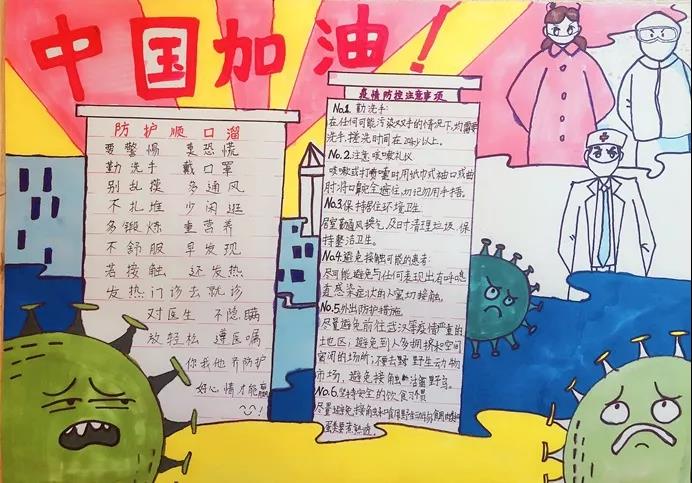 中国加油!
防护顺口溜
要警惕 莫恐慌
勤洗手 戴口罩
别乱摸 多通风
不扎堆 少闲逛
多锻炼 重营养
不舒服 早发现
若接触 还发热
发热门诊去就诊
对医生 不隐瞒
放轻松 遵医嘱
你我他 齐防护
好心情才能赢
疫情防控注意事项
No.1 勤洗手:
在任何可能污染双手的情况下,均需要
洗手,搓洗时间在20秒以上。
No.2.注意咳嗽礼仪
咳嗽或打喷嚏时用纸巾或袖口或曲
肘将口鼻完全遮住,勿用手捂。
No.3.保持居住环境卫生
居室勤通风换气,及时清理垃圾,保
持整洁卫生。
No.4.避免接触可能的患者:
尽可能避免与任何表现出有呼吸
道感染症状的人密切接触。
No.5.外出防护措施
尽量避免前往武汉等疫情严重的
地区;避免到人多拥挤和空间
密闭的场所;不要去野生动物
市场,避免接触 野鸟。
No.6.坚持安全的饮食习惯
尽量避免接触和食用野生动物,食用肉类和
蛋类要煮熟